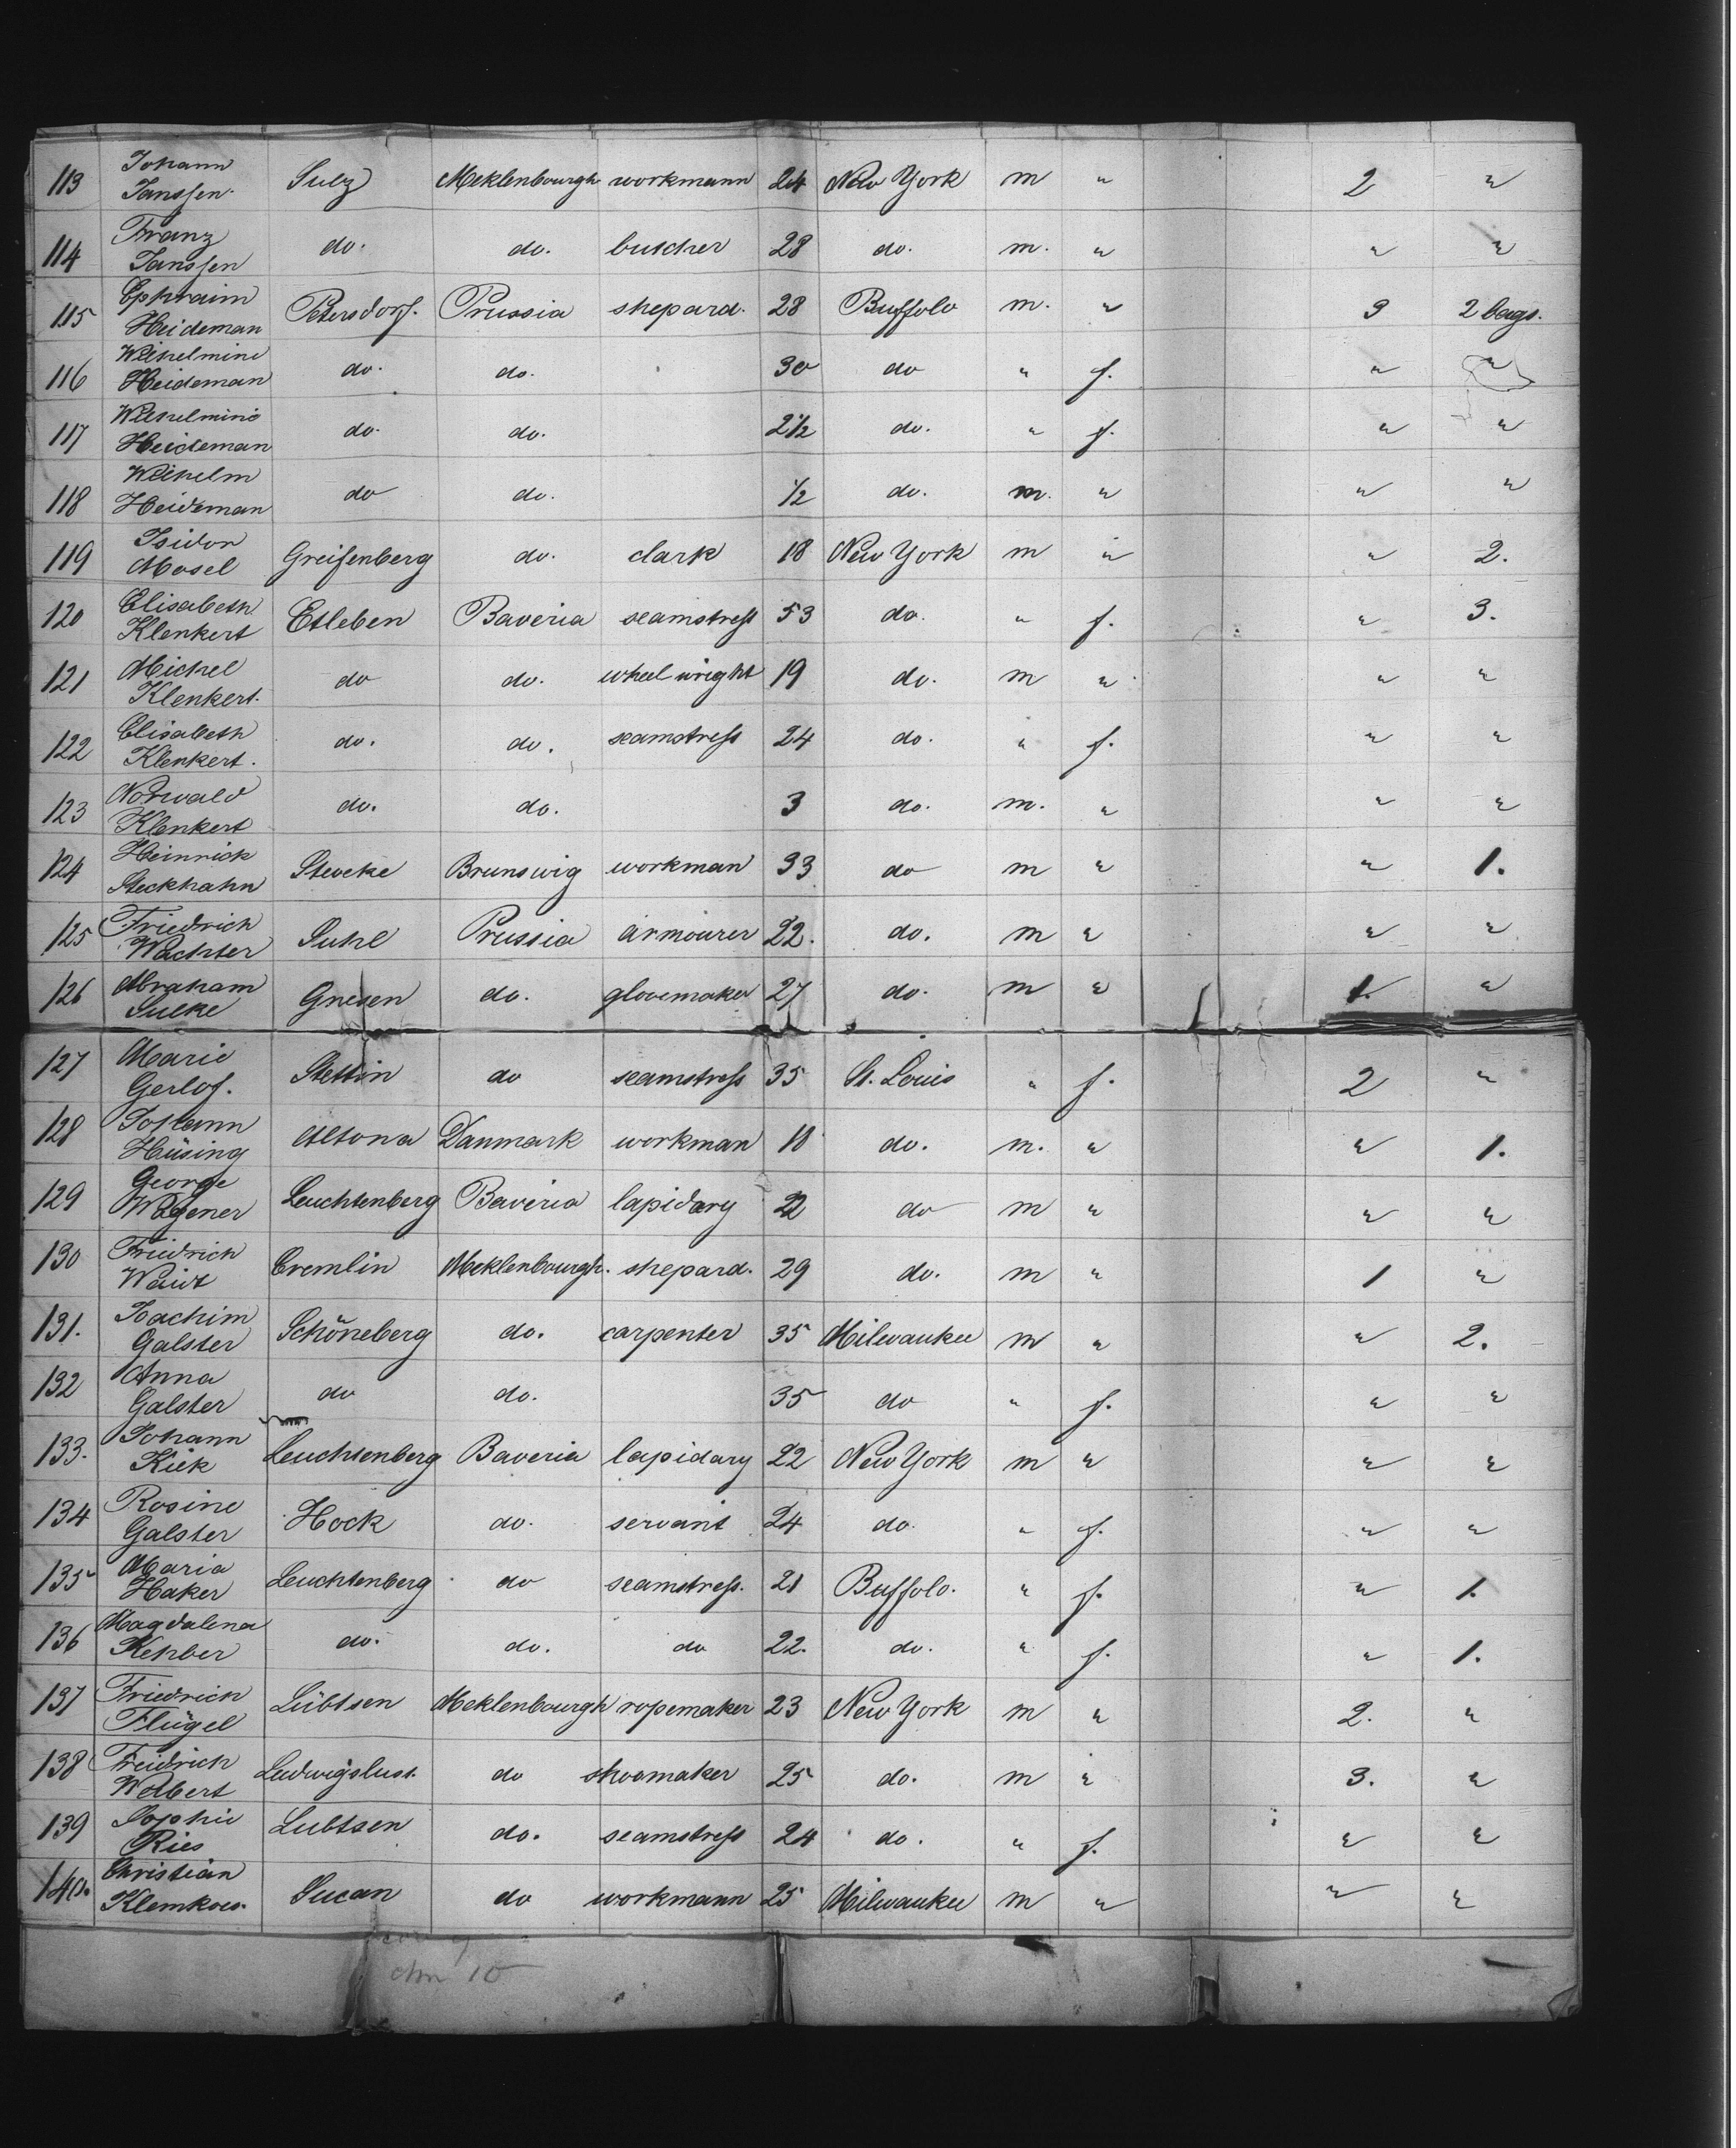 113 Johann Janssen. Sulz Meklenbourgh workmann 24 New York m " 2 "
114 Franz Janssen do. do. butcher 28 do. m. " " "
115 Ephraim Heideman Petersdorf. Prussia shepard. 28 Buffolo m. " 3 2 bags.
116 Wilhelmine Heideman do. do. 30 do " f. " "
117 Wilhelmine Heideman do. do. 2 1/2 do. " f. " "
118 Wilhelm Heideman do do. 1/2 do. m. " " "
119 Isidor Mosel Greifenberg do. clark 18 New York m " " 2.
120 Elisabeth Klenkert Etleben Baveria seamstress 53 do. " f. " 3.
121 Michel Klenkert. do do. wheelwright 19 do. m " " "
122 Elisabeth Klenkert. do. do. seamstress 24 do. " f. " "
123 Norwald Klenkert do. do. 3 do. m. " " "
124 Heinrich Steckhahn Stevcke Brunswig workman 33 do m " " 1.
125 Friedrich Wachter Suhl Prussia armourer 22. do. m " " "
126 Abraham Sulke Gnesen do. glovemaker 27 do. m " 1. "
127 Marie Gerlof. Stettin do seamstress 35 St. Louis " f. 2 "
128 Johann Hüsing Altona Danmark workman 18 do. m. " " 1.
129 George Wagener Leuchtenberg Baveria lapidary 22 do m " " "
130 Friedrich Cremlin Meklenbourgh. shepard. 29 do. m " 1 "
131. Joachim Galster Schöneberg do. carpenter 35 Milwaukee m " " 2.
132 Anna Galster do do. 35 do " f. " "
133. Johann Kick Leuchtenberg Baveria lapidary 22 New York m " " "
134 Rosine Galster Hock do. servant 24 do. " f. " "
135 Maria Haker Leuchtenberg do seamstress. 21 Buffolo. " f. " 1.
136 Magdalena Kehber do. do. do 22. do. " f. " 1.
137 Friedrich Flügel Lübtsen Meklenbourgh ropemaker 23 New York m " 2. "
138 Freidrich Wolbert Ludwigslust. do shoomaker 25 do. m " 3. "
139 Sophie Ries Lubtsen do. seamstress 24 do. " f. " "
140. Christian Klemkow. Sucan do workmann 25 Milwaukee m " " "